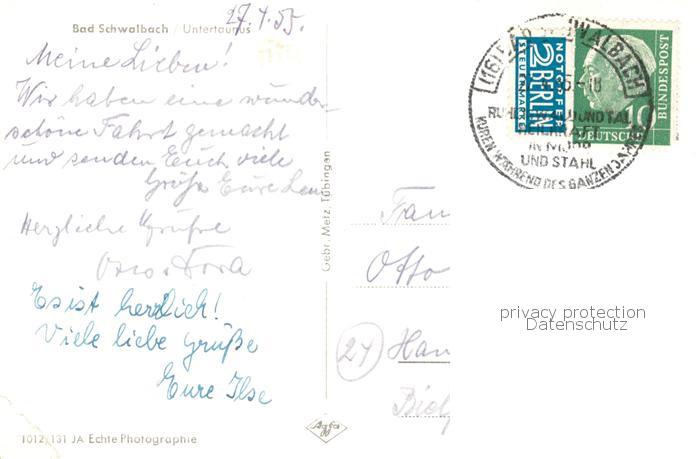 Bad Schwalbach / Untertaunus
27.4.55.
Meine Lieben!
Wir haben eine wunder-
schöne Fahrt gemacht
und senden Euch viele
Grüße Eure
Herzliche Grüsse
Es ist herrlich!
Viele liebe Grüße
Eure Ilse
1012/131 JA Echte Photographie
Gebr. Metz, Tübingen
Agfa
Otto
(24) Han
NOTOPFER
2 BERLIN
STEUERMARKE
10
DEUTSCHE
BUNDESPOST
(16) BAD SCHWALBACH
IN MOOR
UND STAHL
KUREN WÄHREND DES GANZEN JAHRES
privacy protection
Datenschutz